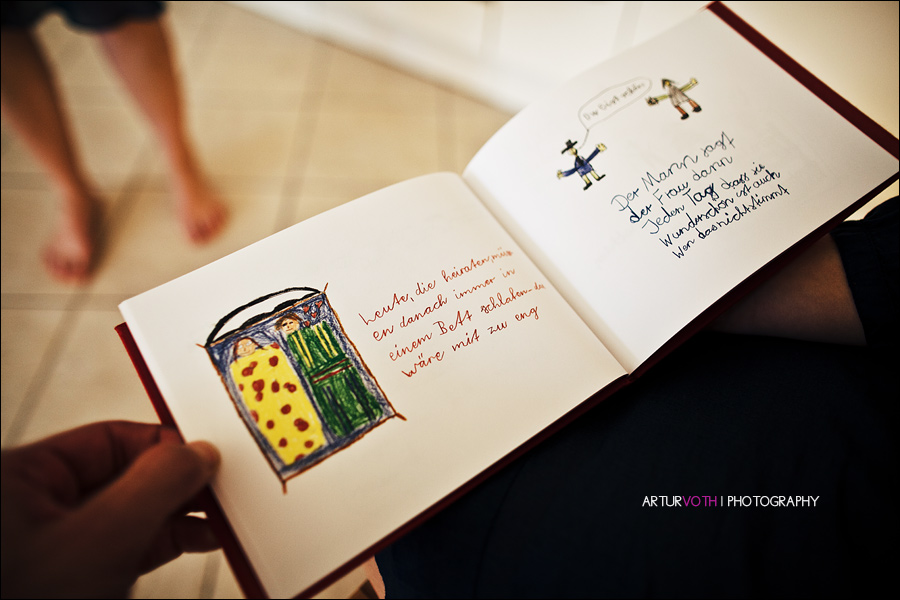 Leute, die heiraten, müss
en danach immer in
einem Bett schlafen- das
wäre mir zu eng
Der Mann sagt
der Frau dann
Jeden Tag dass sie
Wunderschön ist auch
Wen das nicht stimmt
ARTURVOTH | PHOTOGRAPHY